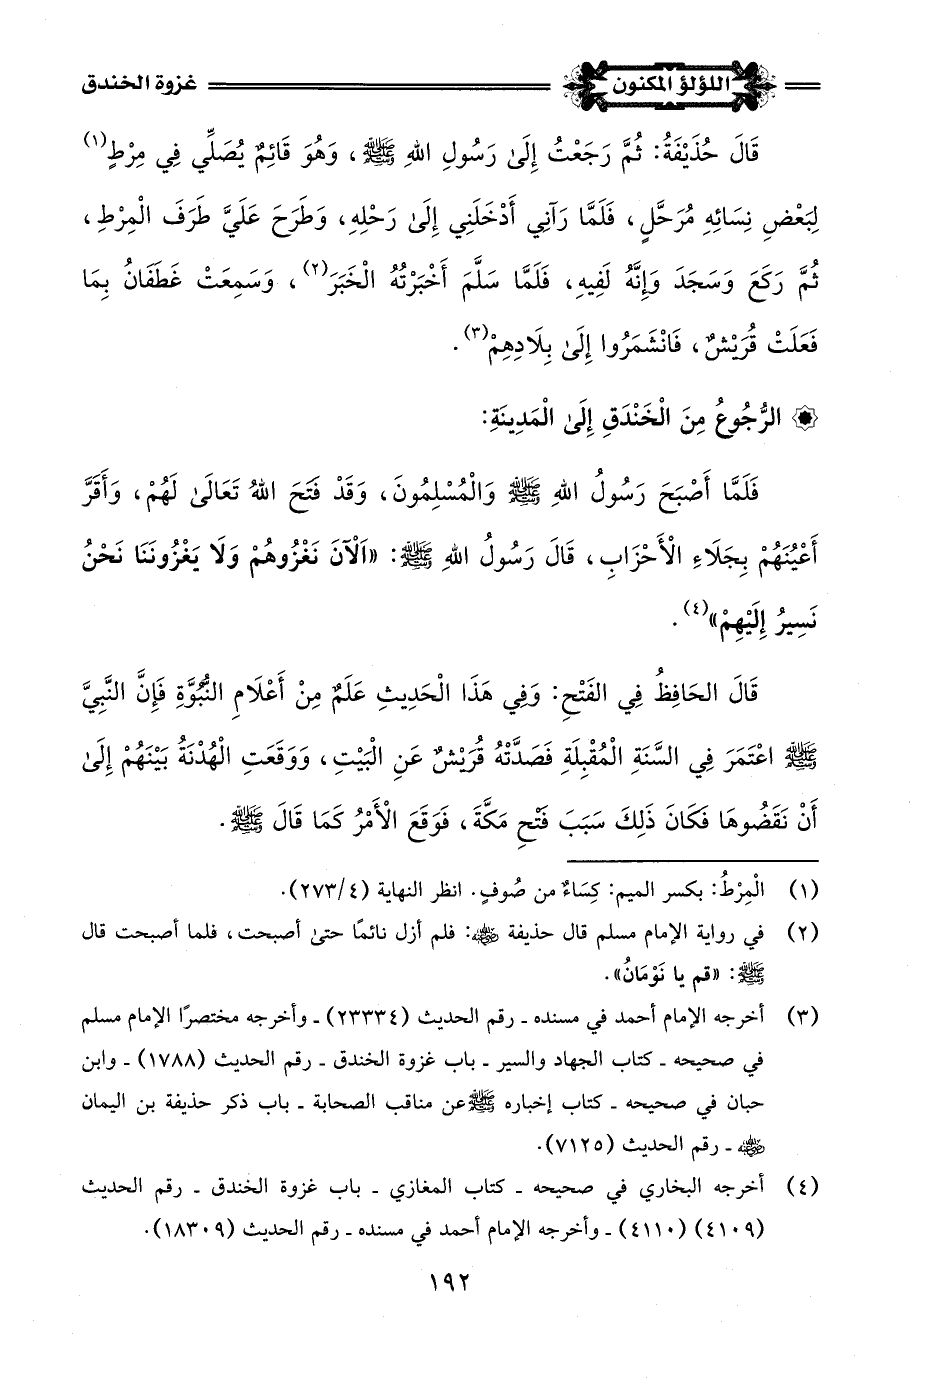 اللؤلؤ المكنون غزوة الخندق
قَالَ حُذَيْفَةُ: ثُمَّ رَجَعْتُ إِلَىٰ رَسُولِ اللهِ ﷺ، وَهُوَ قَائِمٌ يُصَلِّي فِي مِرْطٍ(١)
لِبَعْضِ نِسَائِهِ مُرَحَّلٍ، فَلَمَّا رَآنِي أَدْخَلَنِي إِلَىٰ رَحْلِهِ، وَطَرَحَ عَلَيَّ طَرَفَ الْمِرْطِ،
ثُمَّ رَكَعَ وَسَجَدَ وَإِنَّهُ لَفِيهِ، فَلَمَّا سَلَّمَ أَخْبَرْتُهُ الْخَبَرَ(٢)، وَسَمِعَتْ غَطَفَانُ بِمَا
فَعَلَتْ قُرَيْشٌ، فَانْشَمَرُوا إِلَىٰ بِلَادِهِمْ(٣).
۞ الرُّجُوعُ مِنَ الْخَنْدَقِ إِلَىٰ الْمَدِينَةِ:
فَلَمَّا أَصْبَحَ رَسُولُ اللهِ ﷺ وَالْمُسْلِمُونَ، وَقَدْ فَتَحَ اللهُ تَعَالَىٰ لَهُمْ، وَأَقَرَّ
أَعْيُنَهُمْ بِجَلَاءِ الْأَحْزَابِ، قَالَ رَسُولُ اللهِ ﷺ: «اَلْآنَ نَغْزُوهُمْ وَلَا يَغْزُونَنَا نَحْنُ
نَسِيرُ إِلَيْهِمْ»(٤).
قَالَ الحَافِظُ فِي الفَتْحِ: وَفِي هَذَا الْحَدِيثِ عَلَمٌ مِنْ أَعْلَامِ النُّبُوَّةِ فَإِنَّ النَّبِيَّ
ﷺ اعْتَمَرَ فِي السَّنَةِ الْمُقْبِلَةِ فَصَدَّتْهُ قُرَيْشٌ عَنِ الْبَيْتِ، وَوَقَعَتِ الْهُدْنَةُ بَيْنَهُمْ إِلَىٰ
أَنْ نَقَضُوهَا فَكَانَ ذَلِكَ سَبَبَ فَتْحِ مَكَّةَ، فَوَقَعَ الْأَمْرُ كَمَا قَالَ ﷺ.
(١) الْمِرْطُ: بكسر الميم: كِسَاءٌ من صُوفٍ. انظر النهاية (٢٧٣/٤).
(٢) في رواية الإمام مسلم قال حذيفة رضي الله عنه: فلم أزل نائمًا حتىٰ أصبحت، فلما أصبحت قال
ﷺ: «قم يا نَوْمَانُ».
(٣) أخرجه الإمام أحمد في مسنده ـ رقم الحديث (٢٣٣٣٤) ـ وأخرجه مختصرًا الإمام مسلم
في صحيحه ـ كتاب الجهاد والسير ـ باب غزوة الخندق ـ رقم الحديث (١٧٨٨) ـ وابن
حبان في صحيحه ـ كتاب إخباره ﷺ عن مناقب الصحابة ـ باب ذكر حذيفة بن اليمان
رضي الله عنه ـ رقم الحديث (٧١٢٥).
(٤) أخرجه البخاري في صحيحه ـ كتاب المغازي ـ باب غزوة الخندق ـ رقم الحديث
(٤١٠٩) (٤١١٠) ـ وأخرجه الإمام أحمد في مسنده ـ رقم الحديث (١٨٣٠٩).
١٩٢